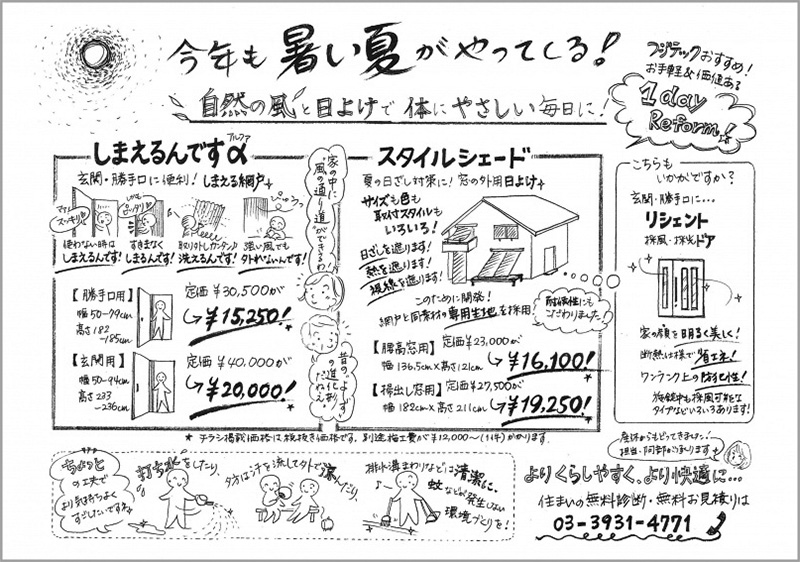 今年も暑い夏がやってくる!
自然の風と日よけで体にやさしい毎日に!
フジテックおすすめ!
お手軽&価値ある
1day
Reform!
アルファ
しまえるんですα
玄関・勝手口に便利!しまえる網戸
スッキリ
しかも
ピッタリ
ぴゅうっ
使わない時は
しまえるんです!
すきまなく
しまるんです!
取り外しカンタン♪
洗えるんです!
強い風でも
外れないんです!
【勝手口用】
幅50-79cm
高さ182
-185cm
定価¥30,500が
¥15,250!
【玄関用】
幅50-94cm
高さ233
-236cm
定価¥40,000が
¥20,000!
家の中に
風の通り道ができるわ
昔の“よしず”
の進化形
だねぇ
スタイルシェード
夏の日ざし対策に!窓の外用日よけ
サイズも色も
取付スタイルも
いろいろ!
日ざしを遮ります!
熱を遮ります!
視線を遮ります!
このために開発!
網戸と同素材の専用生地を採用
耐候性にも
こだわりました!
【腰高窓用】定価¥23,000が
幅136.5cm×高さ121cm
¥16,100!
【掃出し窓用】定価¥27,500が
幅182cm×高さ211cm
¥19,250!
こちらも
いかがですか?
玄関・勝手口に…
リシェント
採風・採光ドア
家の顔を明るく美しく!
断熱仕様で省エネ!
ワンランク上の防犯性!
施錠中も採風可能な
タイプなどいろいろあります!
*チラシ掲載価格は税抜き価格です。別途施工費が¥12,000〜(1件)かかります。
産休からもどってきました!
担当・阿部がうかがいます
ちょっと
の工夫で
より気持ちよく
すごしたいですね
打ち水をしたり、
夕方は汗を流して外で涼んだり、
排水溝まわりなどは清潔に、
蚊などが発生しない
環境づくりを!
よりくらしやすく、より快適に…
住まいの無料診断・無料お見積りは
03-3931-4771